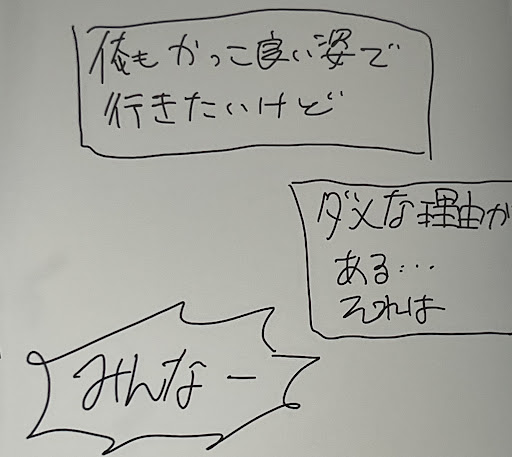 俺もかっこ良い姿で
行きたいけど
ダメな理由が
ある…
それは
みんなー